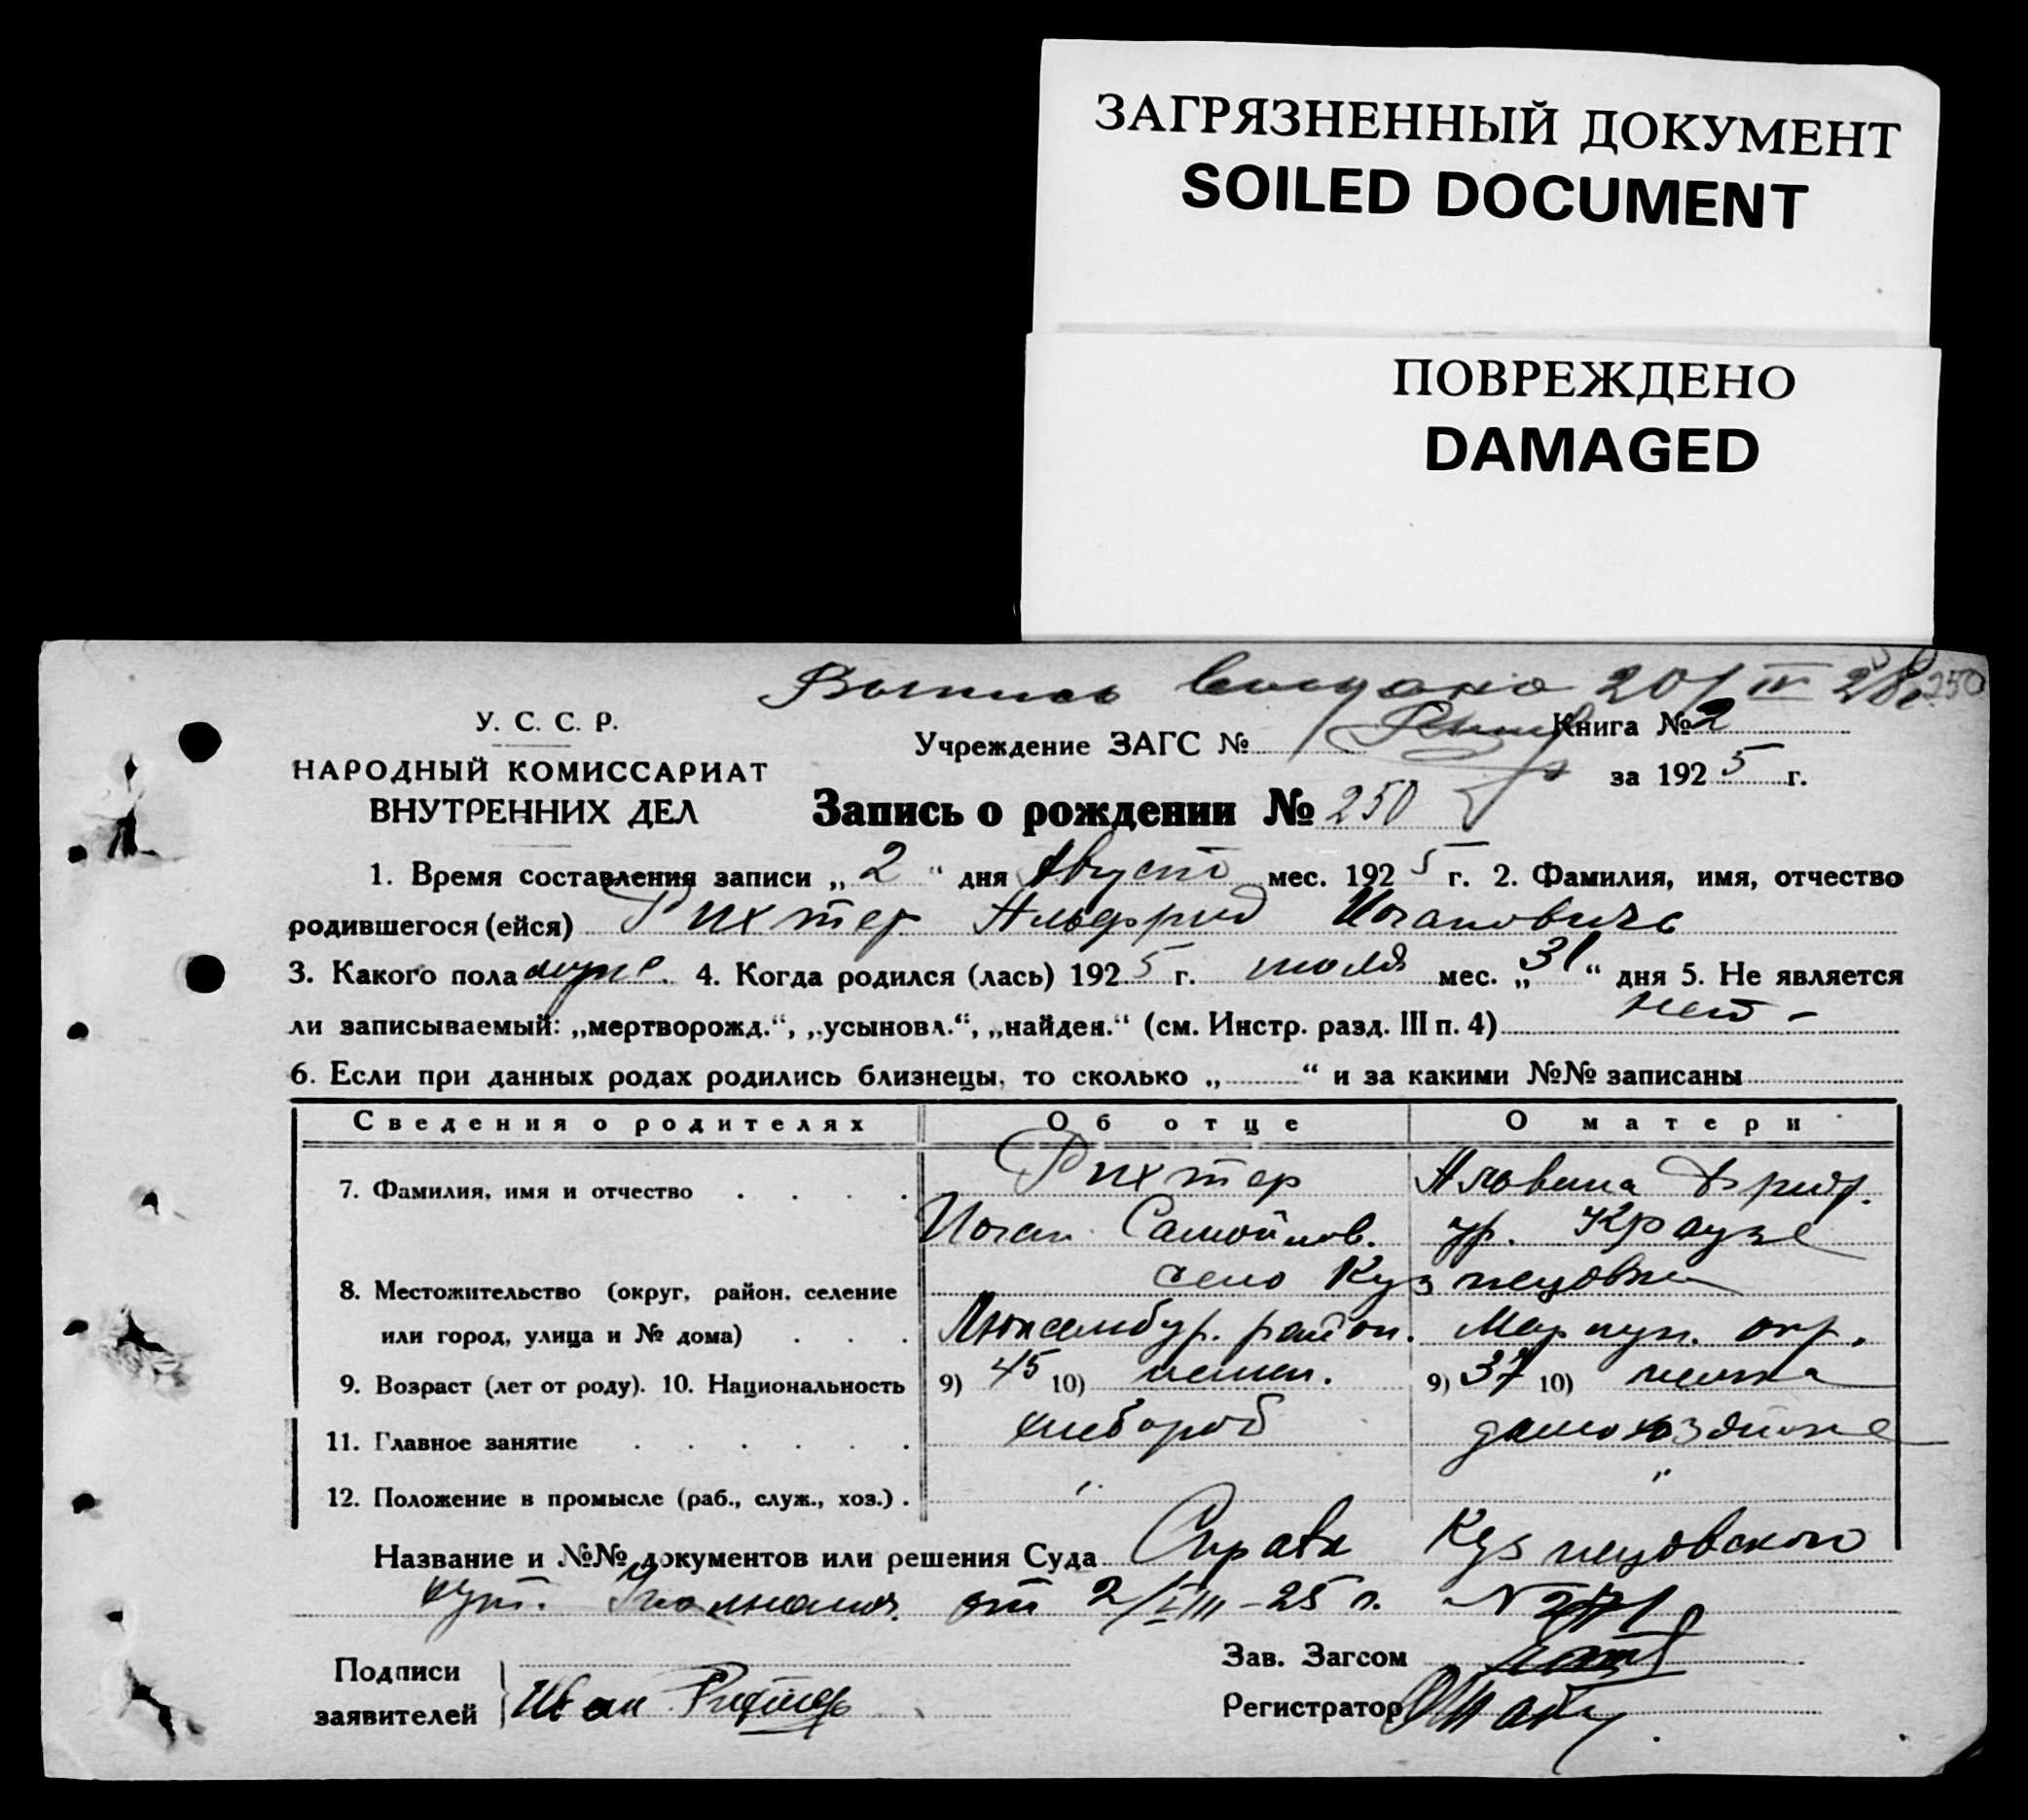 ЗАГРЯЗНЕННЫЙ ДОКУМЕНТ
SOILED DOCUMENT
ПОВРЕЖДЕНО
DAMAGED
Выпись выдана 20/IV 28г. 250
У. С. С. Р.
НАРОДНЫЙ КОМИССАРИАТ
ВНУТРЕННИХ ДЕЛ
Учреждение ЗАГС № Книга № 2
за 1925 г.
Запись о рождении № 250
1. Время составления записи „2" дня Август мес. 1925 г. 2. Фамилия, имя, отчество
родившегося (ейся) Рихтер Альфрид Иоганович
3. Какого пола муж. 4. Когда родился (лась) 1925 г. июля мес. „31" дня 5. Не является
ли записываемый: „мертворожд.", „усыновл.", „найден." (см. Инстр. разд. III п. 4) нет -
6. Если при данных родах родились близнецы, то сколько „ " и за какими №№ записаны
Сведения о родителях Об отце О матери
7. Фамилия, имя и отчество Рихтер Альвина Фридр.
Иоган Самойлов. ур. Краузе
8. Местожительство (округ, район, селение село Кузнецовка
или город, улица и № дома) Люксембур. район. Мариуп. окр.
9. Возраст (лет от роду). 10. Национальность 9) 45 10) немец. 9) 37 10) немка
11. Главное занятие хлебороб домохозяйка
12. Положение в промысле (раб., служ., хоз.) . " "
Название и №№ документов или решения Суда Справка Кузнецовского
от 2/VIII-25 г. №
Подписи
заявителей Иван Рихтер
Зав. Загсом
Регистратор